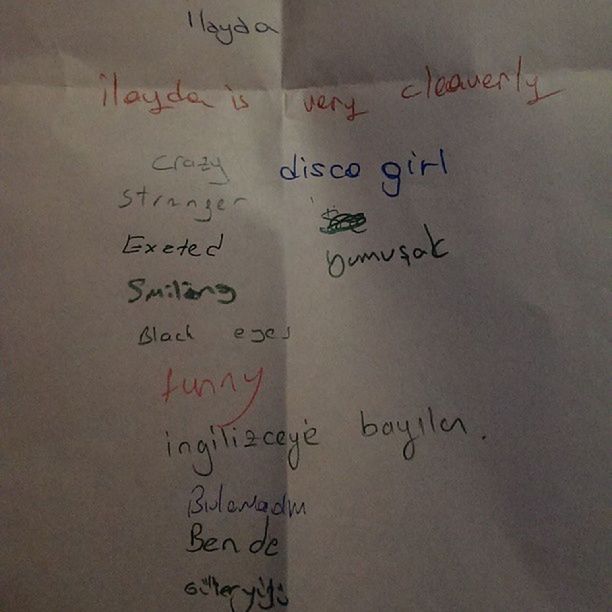 Ilayda
ilayda is very cleaverly
crazy disco girl
stranger
Exeted yumuşak
Smiling
Black eyes
funny
ingilizceye bayılır.
Bulamadım
Ben de
Güleryüzlü